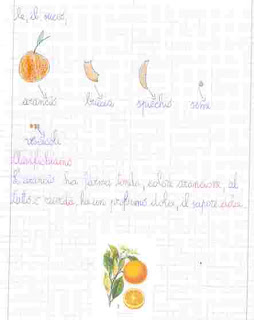 le, il succo,
arancio buccia spicchio semi
vescicole
Classifichiamo
L'arancio ha forma tonda, colore arancione, al
tatto è ruvida, ha un profumo dolce, il sapore dolce.